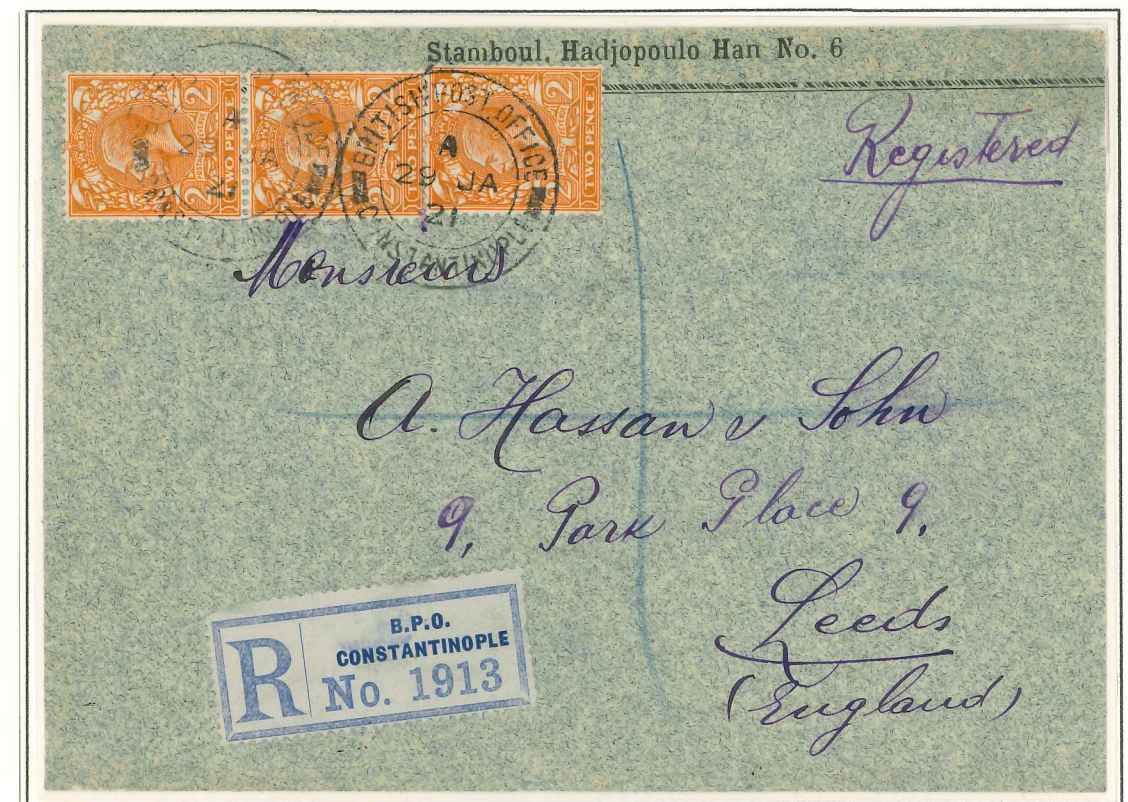 Stamboul, Hadjopoulo Han No. 6
2 TWO PENCE 2
2 TWO PENCE 2
2 TWO PENCE 2
BRITISH POST OFFICE
A
29 JA
21
CONSTANTINOPLE
Registered
Monsieurs
A. Hassan & Sohn
9, Park Place 9.
Leeds
(England)
R
B.P.O.
CONSTANTINOPLE
No. 1913